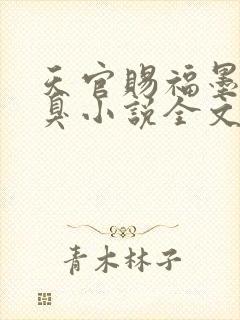 天官赐福墨
臭小说全文
青木林子